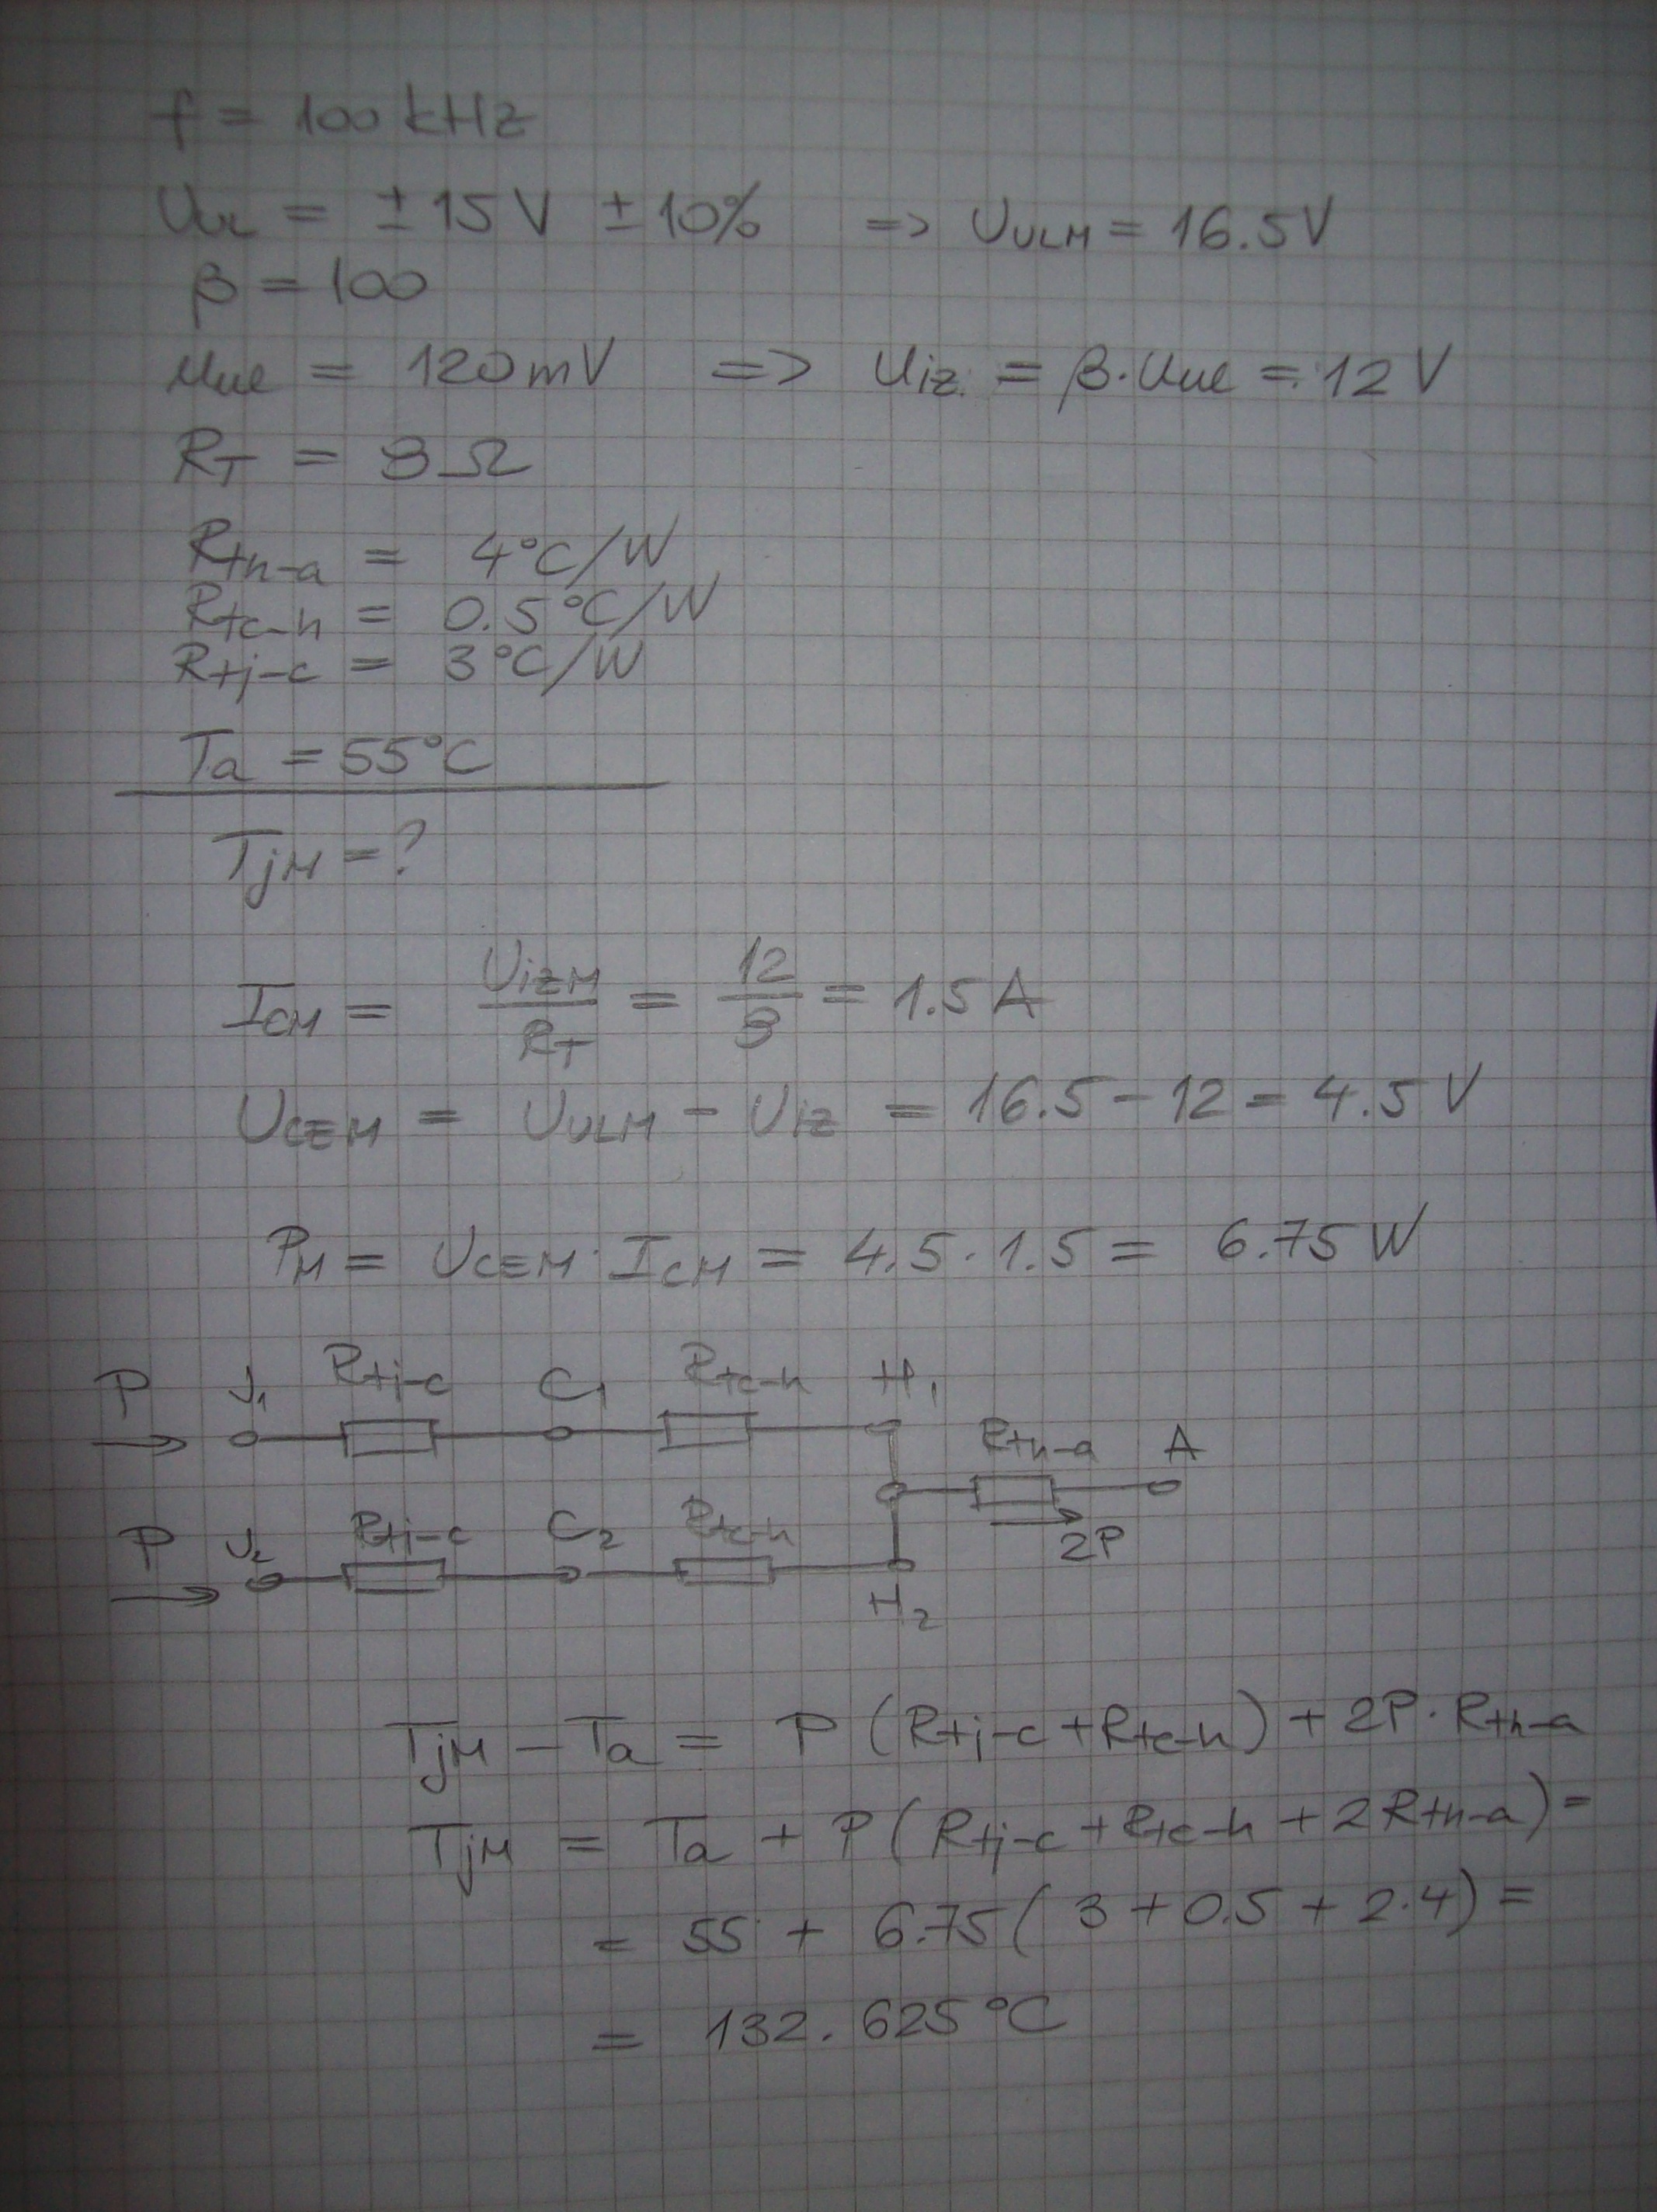 f = 100 kHz
Uul = ± 15 V ± 10% => UULM = 16.5 V
β = 100
Uul = 120 mV => Uiz = β · Uul = 12 V
RT = 8 Ω
Rth-a = 4°C/W
Rtc-h = 0.5°C/W
Rtj-c = 3°C/W
Ta = 55°C
TjM = ?
ICM = UizM / RT = 12 / 8 = 1.5 A
UCEM = UULM - Uiz = 16.5 - 12 = 4.5 V
PM = UCEM · ICM = 4.5 · 1.5 = 6.75 W
P J1 Rtj-c C1 Rtc-h H1
Rth-a A
2P
P J2 Rtj-c C2 Rtc-h
H2
TjM - Ta = P (Rtj-c + Rtc-h) + 2P · Rth-a
TjM = Ta + P (Rtj-c + Rtc-h + 2Rth-a) =
= 55 + 6.75 (3 + 0.5 + 2·4) =
= 132.625°C